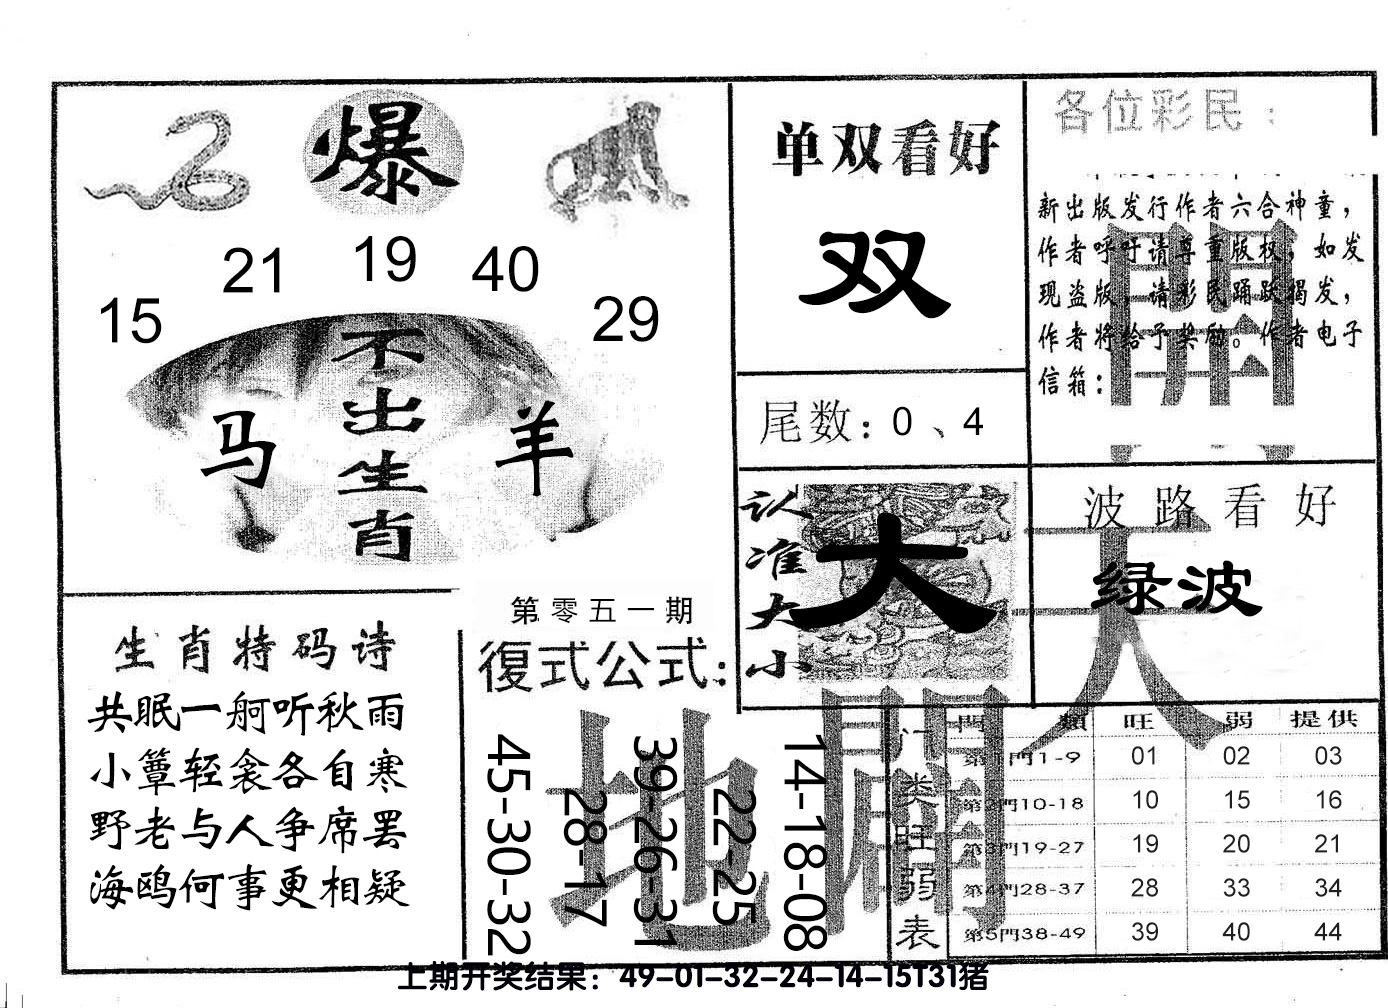 爆
15 21 19 40 29
不出生肖
马 羊
生肖特码诗
共眠一舸听秋雨
小簟轻衾各自寒
野老与人争席罢
海鸥何事更相疑
第零五一期
復式公式：
45-30-32
28-17
39-26-31
22-25
14-18-08
单双看好
双
尾数：0、4
认准大小
大
各位彩民：
新出版发行作者六合神童，
作者呼吁请尊重版权，如发
现盗版，请彩民踊跃揭发，
作者将给予奖励。作者电子
信箱：
波路看好
绿波
天
開
地
門
门类旺弱表
門類 旺 弱 提供
第1門1-9 01 02 03
第2門10-18 10 15 16
第3門19-27 19 20 21
第4門28-37 28 33 34
第5門38-49 39 40 44
上期开奖结果：49-01-32-24-14-15T31猪